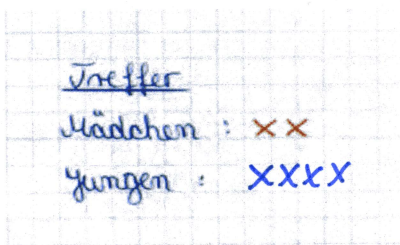 Treffer
Mädchen : xx
Jungen : xxxx